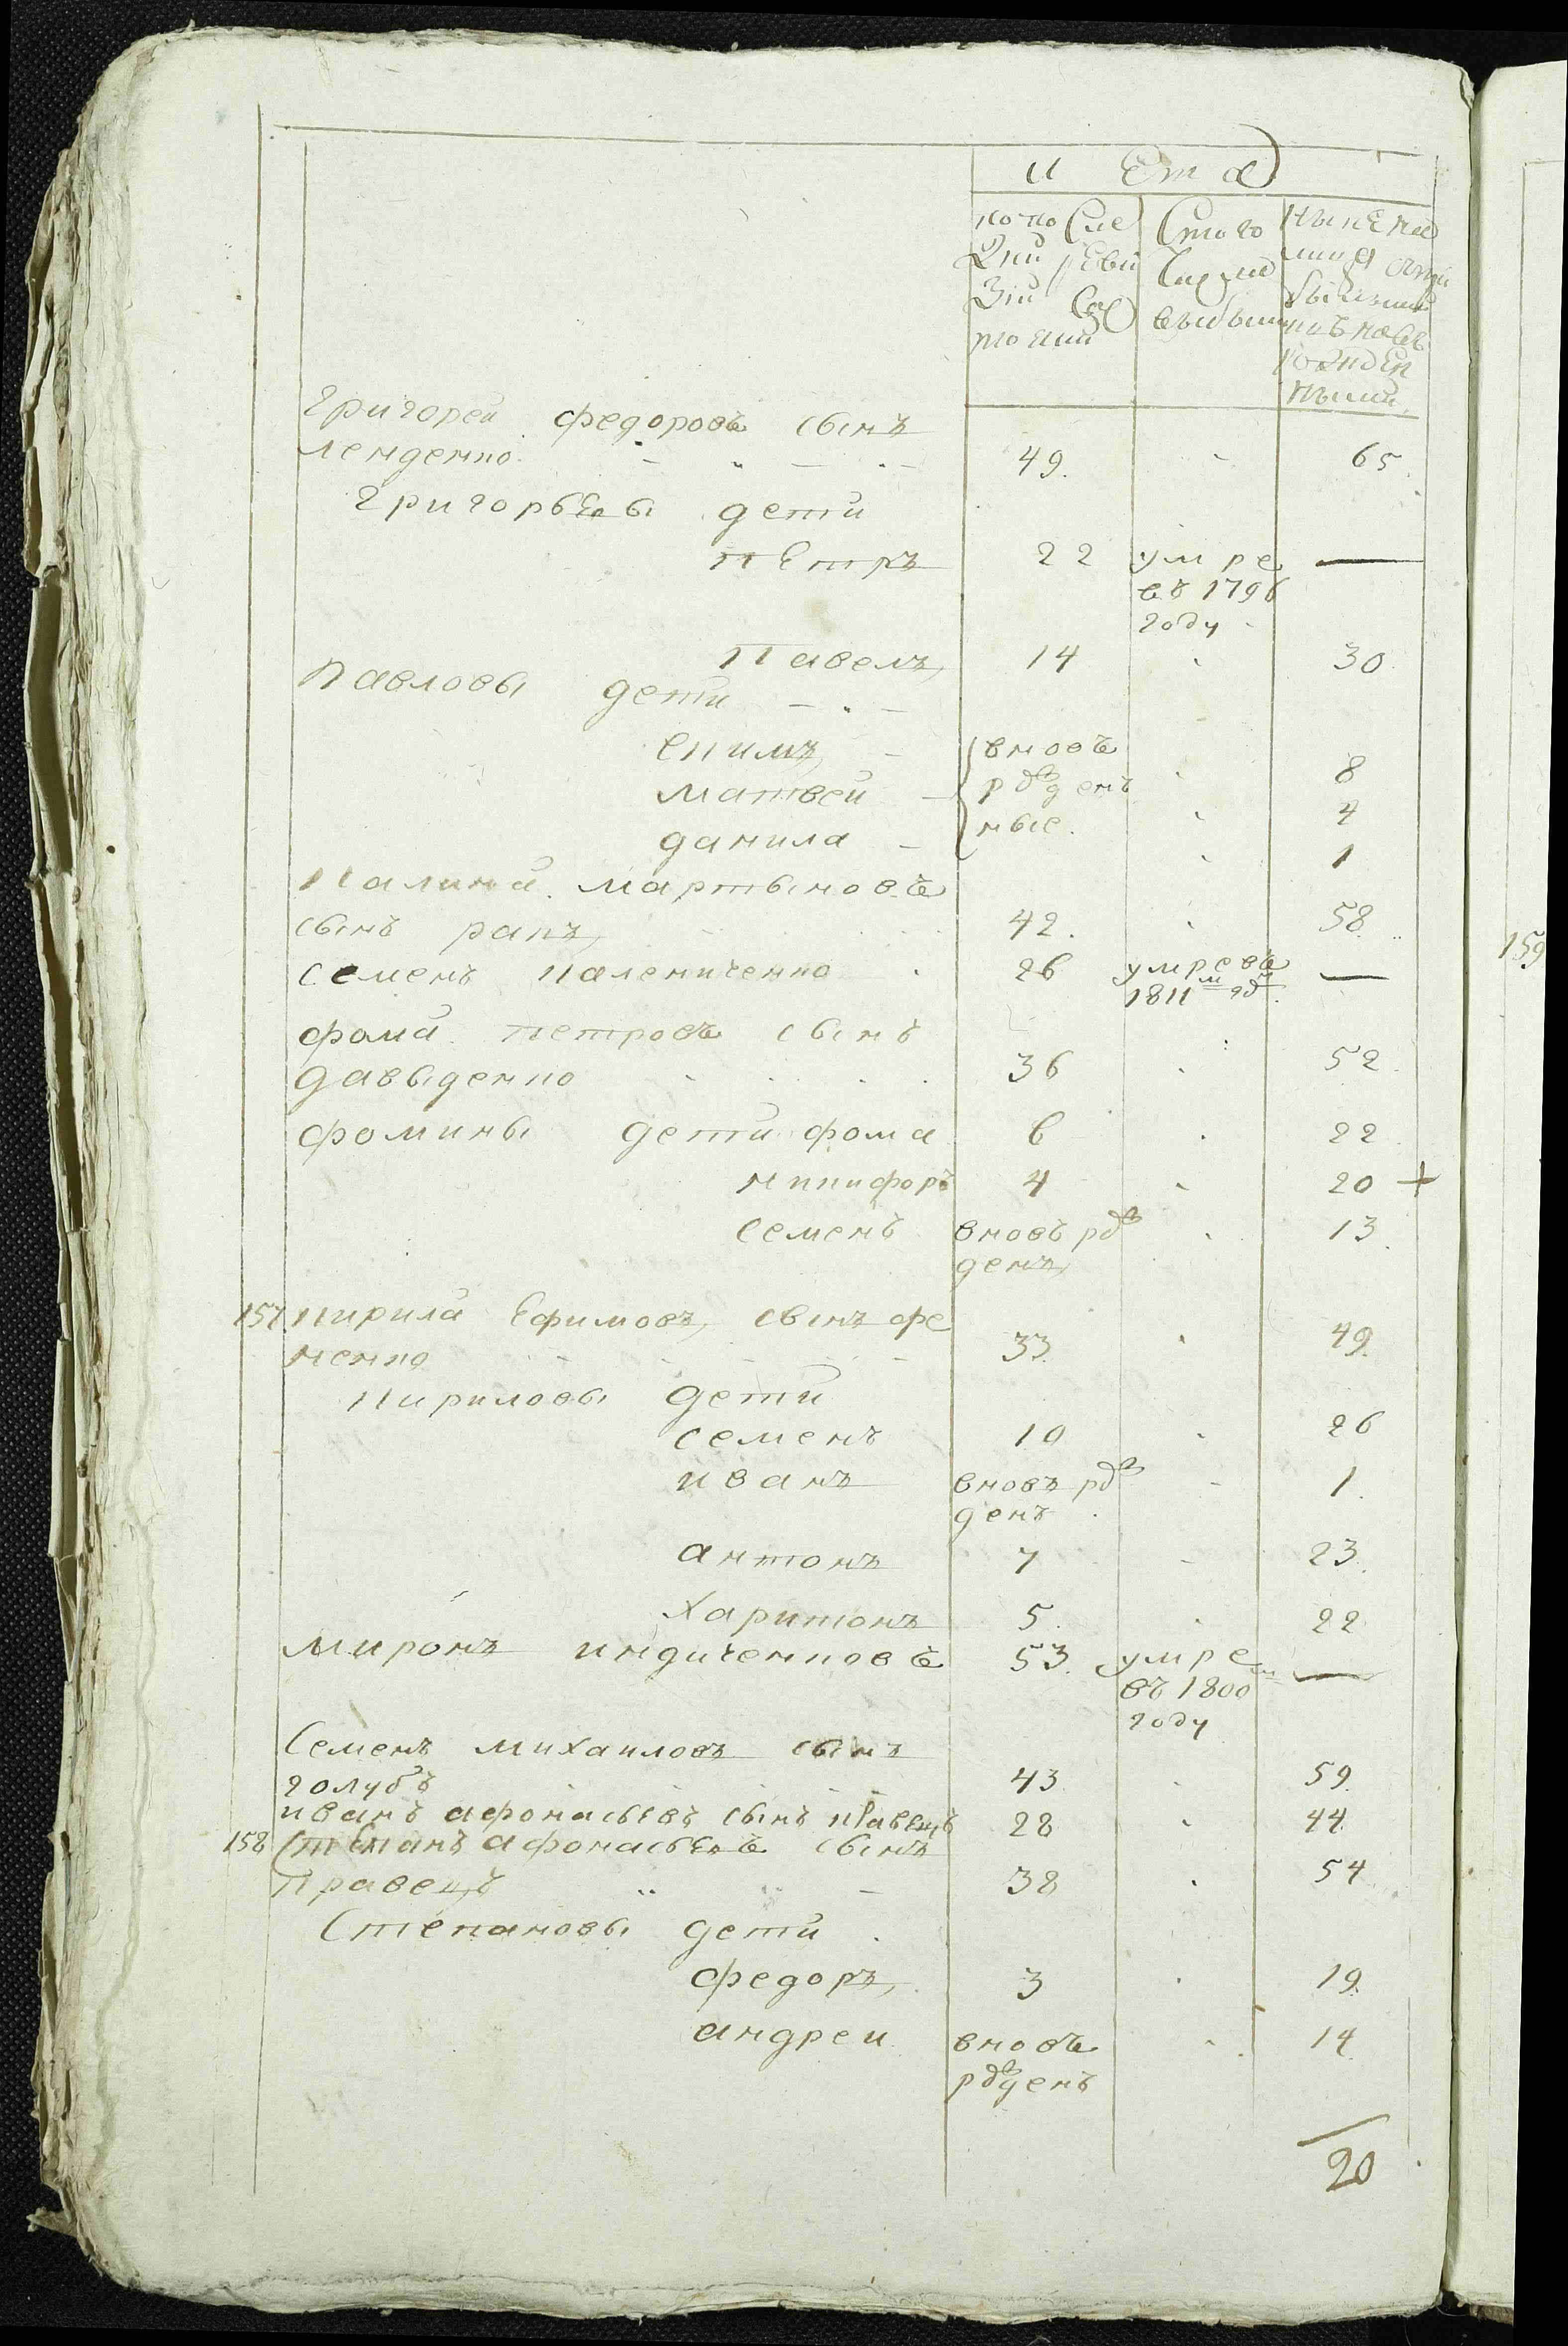 Лета
по по сле
дней реви
зии со
стояли
с того
числа
выбыли
ныне на
лицо
рожден
ными
Григорей федоровъ сынъ
ленденко 49. 65.
Григорьевы дети
петръ 22 умре —
въ 1796
году
Павелъ 14 30.
Павловы дети
Екимъ вновь
Матвей рождент 8
данила ные. 4
1
Калина Мартыновъ
сынъ ракъ 42. 58.
семенъ калениченко 26 умре въ —
1811м год.
фома петровъ сынъ
давыденко 36 52.
фомины дети фома 6 22
никифоръ 4 20 +
семенъ вновъ рож 13.
денъ
157 Кирила Ефимовъ сынъ фе
ненко 33. 49.
Кириловы дети
семенъ 10 26
иванъ вновъ рож 1.
денъ
антонъ 7 23.
Харитонъ 5. 22
Миронъ индиченковъ 53. умре —
въ 1800м
году
Семенъ михаиловъ сынъ
голубъ 43 59.
иванъ афонасьевъ сынъ кравецъ 28 44.
158 Степанъ афонасьевъ сынъ
кравецъ 38 54
Степановы дети
федоръ 3 19.
андреи вновь 14
рожденъ
20
159